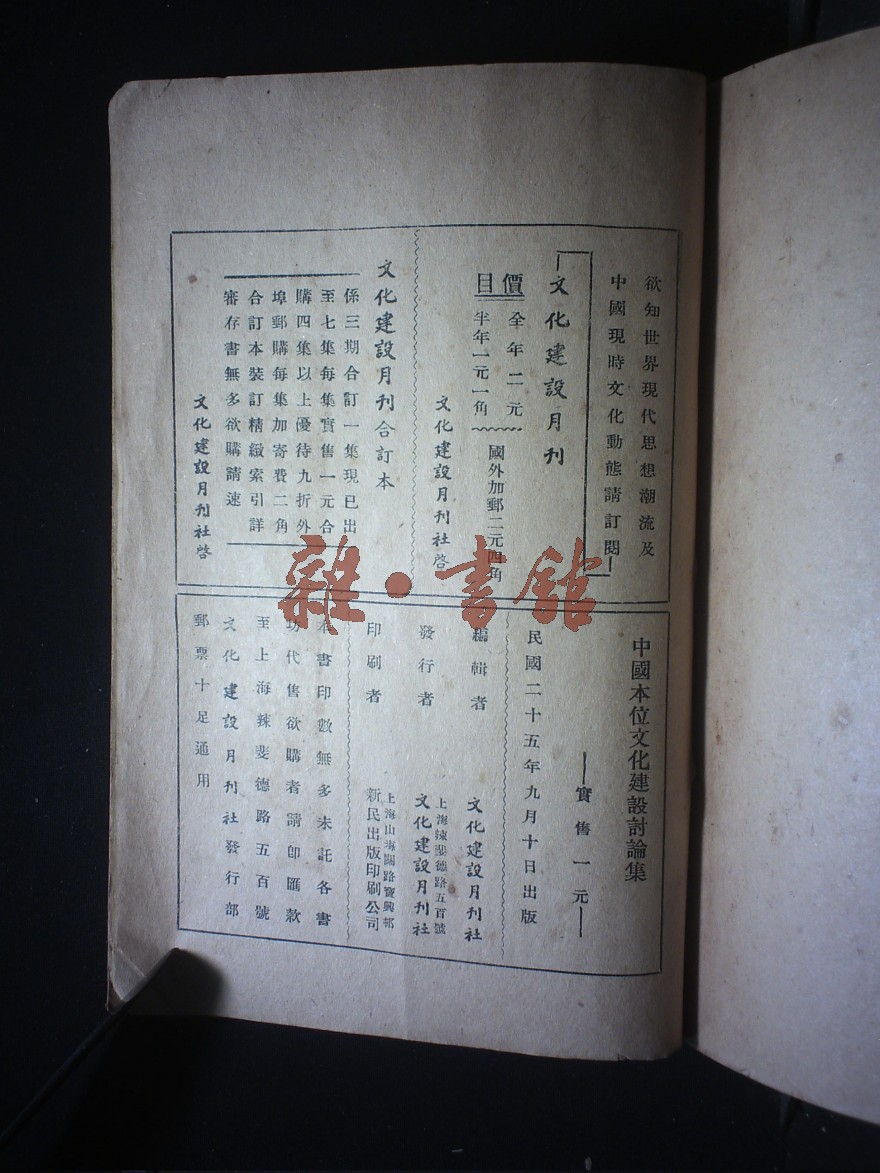 欲知世界現代思想潮流及
中國現時文化動態請訂閱
文化建設月刊
價目
全年二元
半年一元一角
國外加郵二元四角
文化建設月刊社啓
文化建設月刊合訂本
係三期合訂一集現已出
至七集每集實售一元合
購四集以上優待九折外
埠郵購每集加寄費二角
合訂本裝訂精緻索引詳
審存書無多欲購請速
文化建設月刊社啓
雜·書館
中國本位文化建設討論集
實售一元
民國二十五年九月十日出版
編輯者
文化建設月刊社
發行者
上海辣斐德路五百號
文化建設月刊社
印刷者
上海山海關路寶興邨
新民出版印刷公司
本書印數無多未託各書
坊代售欲購者請卽匯款
至上海辣斐德路五百號
文化建設月刊社發行部
郵票十足通用